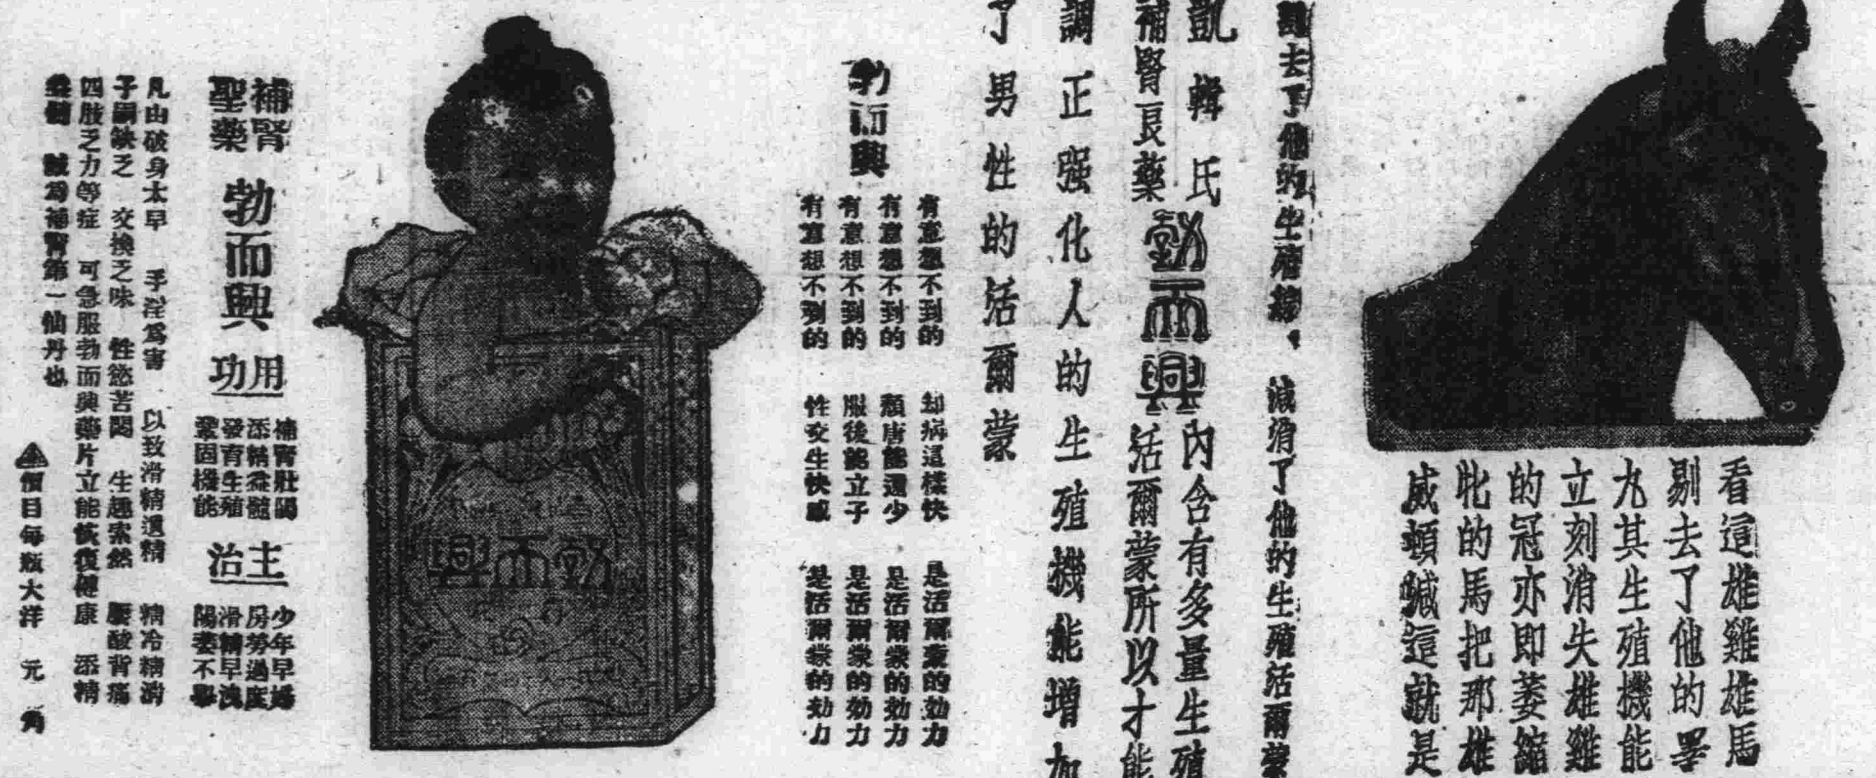 看這雄雞雄馬
剔去了他的睪
丸其生殖機能
立刻消失雄雞
的冠亦即萎縮
牝的馬把那雄
威頓減這就是
去了他的生殖線、減消了他的生殖活爾蒙
凱韓氏
補腎良藥
勃而興
內含有多量生殖
活爾蒙所以才能
調正强化人的生殖機能增加
了男性的活爾蒙
勃而興
有意想不到的 却病這樣快 是活爾蒙的効力
有意想不到的 頹唐能還少 是活爾蒙的効力
有意想不到的 服後能立子 是活爾蒙的効力
有意想不到的 性交生快感 是活爾蒙的効力
勃而興
補腎
聖藥
勃而興
用功
補腎壯陽
添精益髓
發育生殖
鞏固機能
主治
少年早婚
房勞過度
滑精早洩
陽萎不舉
凡由破身太早 手淫爲害 以致滑精遺精 精冷精清
子嗣缺乏 交換乏味 性慾苦悶 生趣索然 腰酸背痛
四肢乏力等症 可急服勃而興藥片立能恢復健康 添精
益髓 誠爲補腎第一仙丹也
價目每瓶大洋 元 角